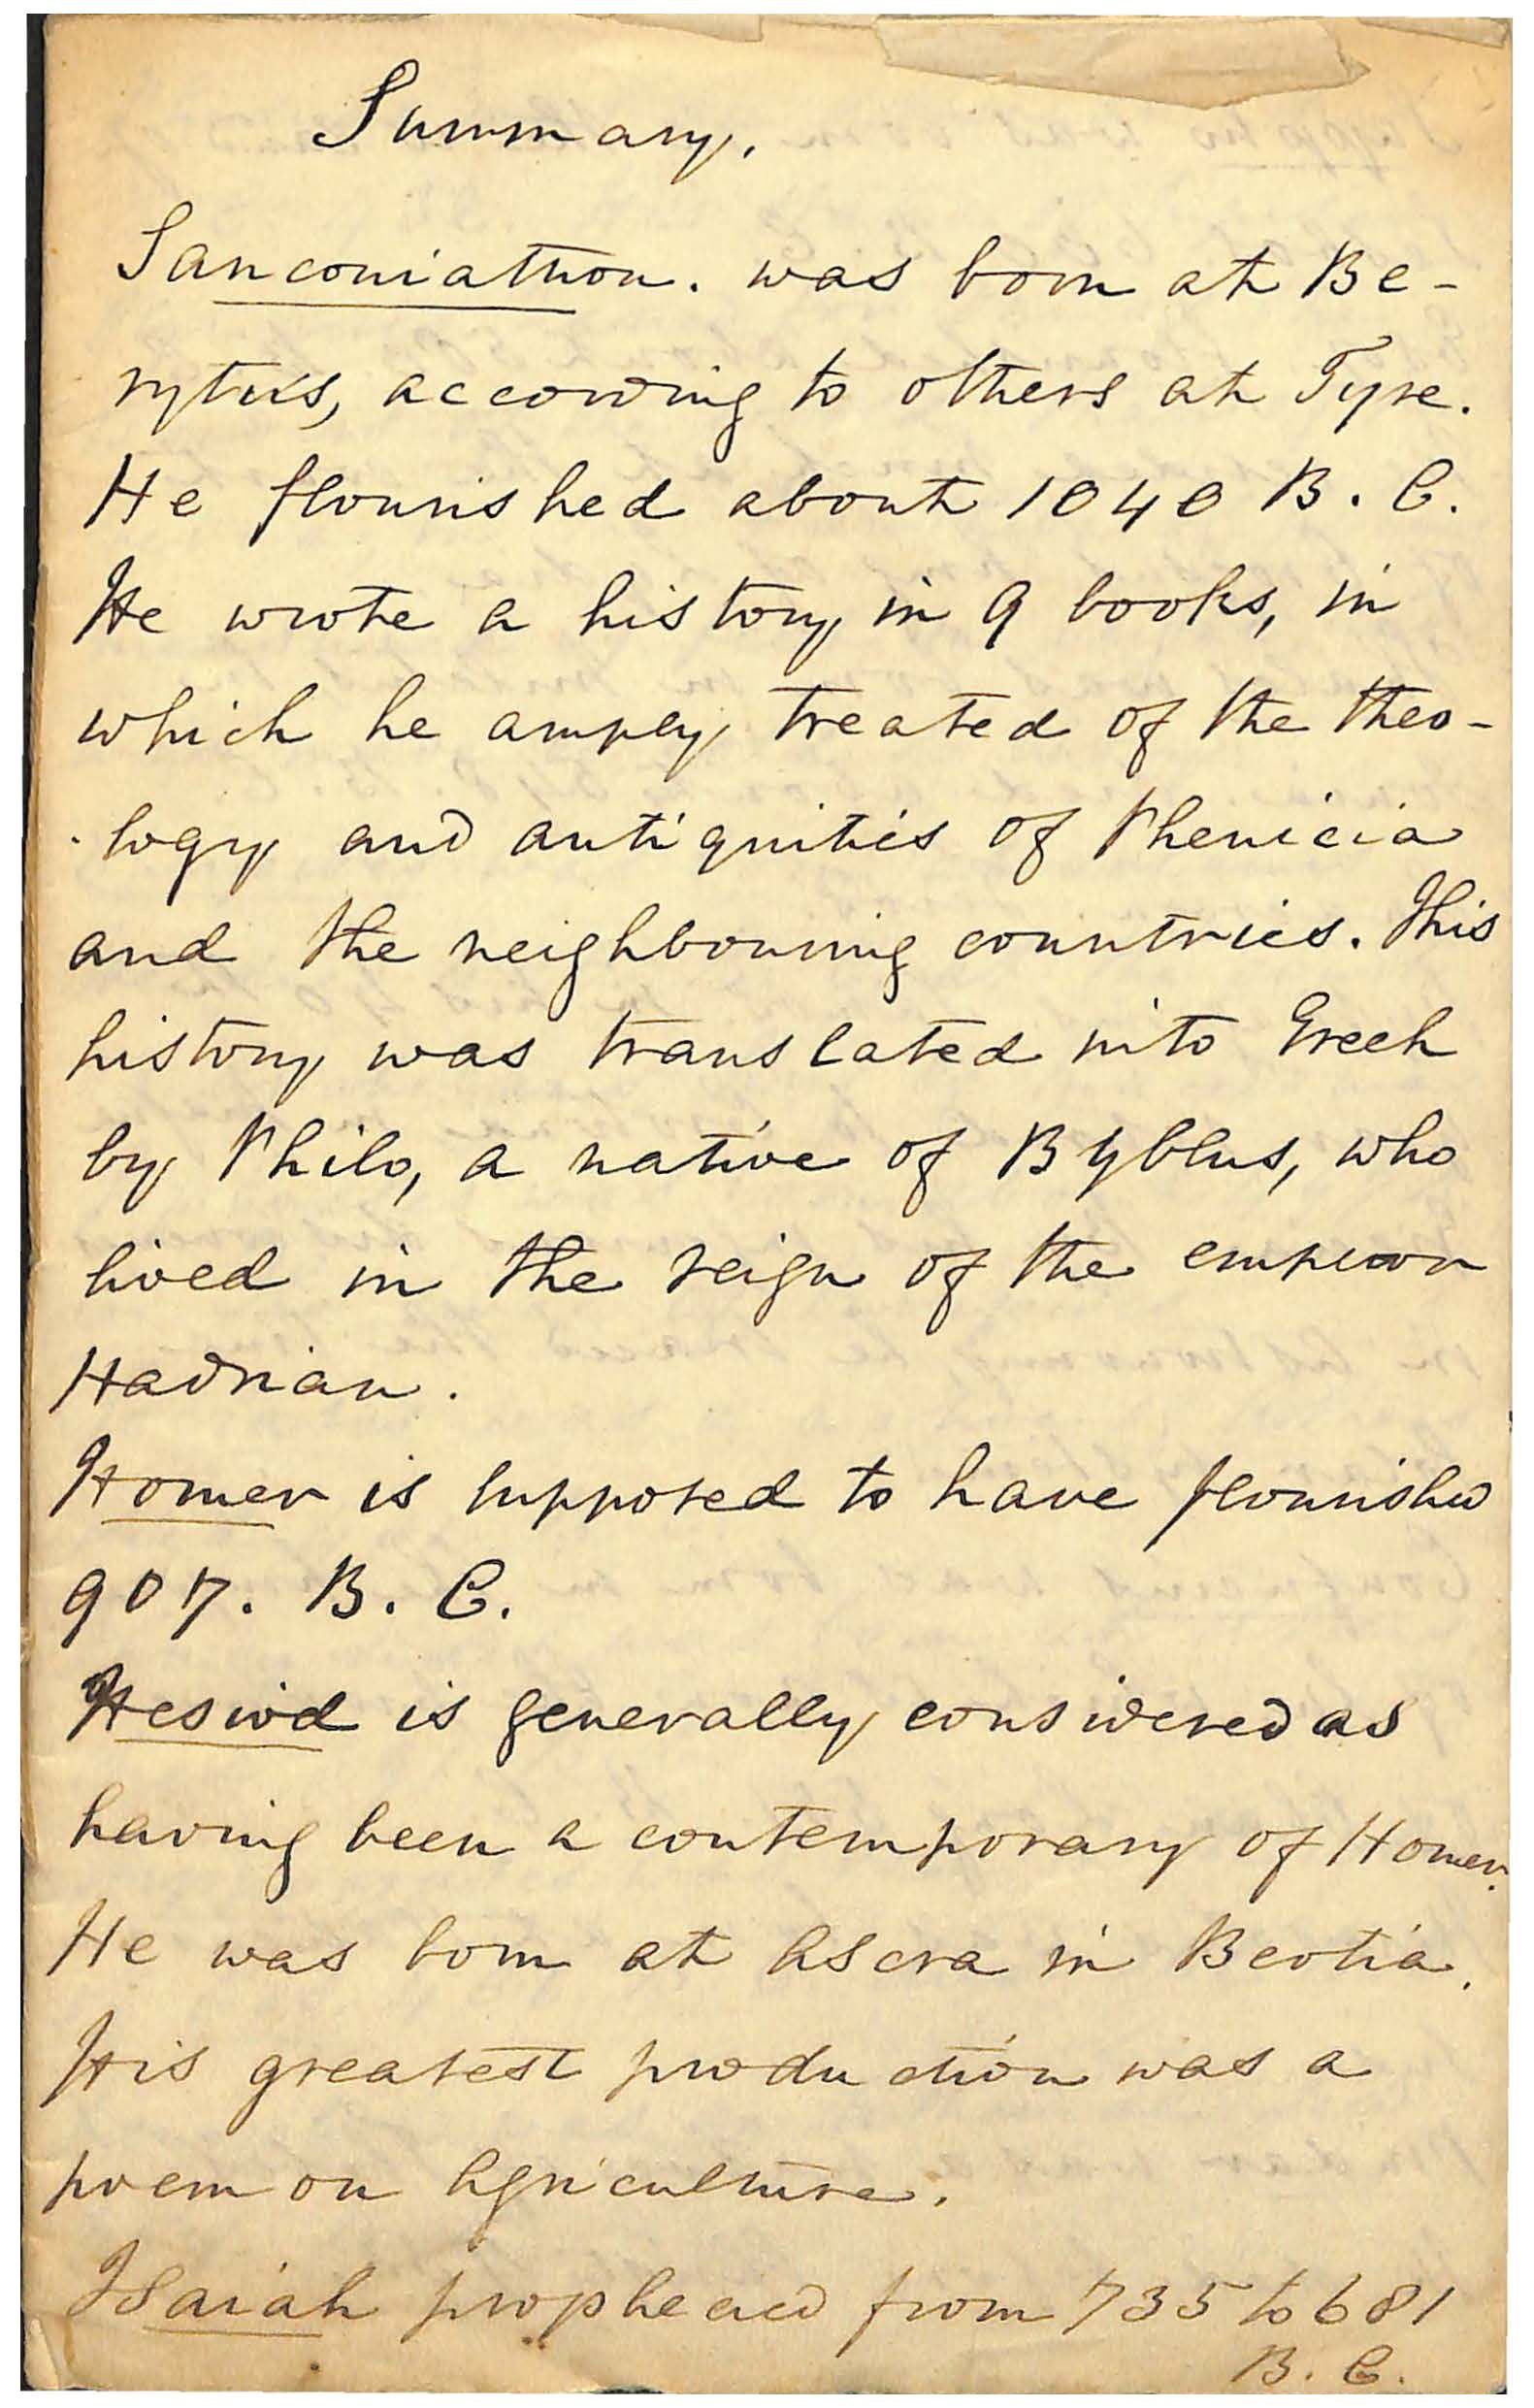 Summary.
Sanconiathon. was born at Be-
rytus, according to others at Tyre.
He flourished about 1040 B. C.
He wrote a history in 9 books, in
which he amply treated of the theo-
logy and antiquities of Phenicia
and the neighbouring countries. This
history was translated into Greek
by Philo, a native of Byblus, who
lived in the reign of the emperor
Hadrian.
Homer is supposed to have flourished
907. B. C.
Hesiod is generally considered as
having been a contemporary of Homer.
He was born at Ascra in Beotia.
His greatest production was a
poem on Agriculture.
Isaiah prophecied from 735 to 681
B. C.